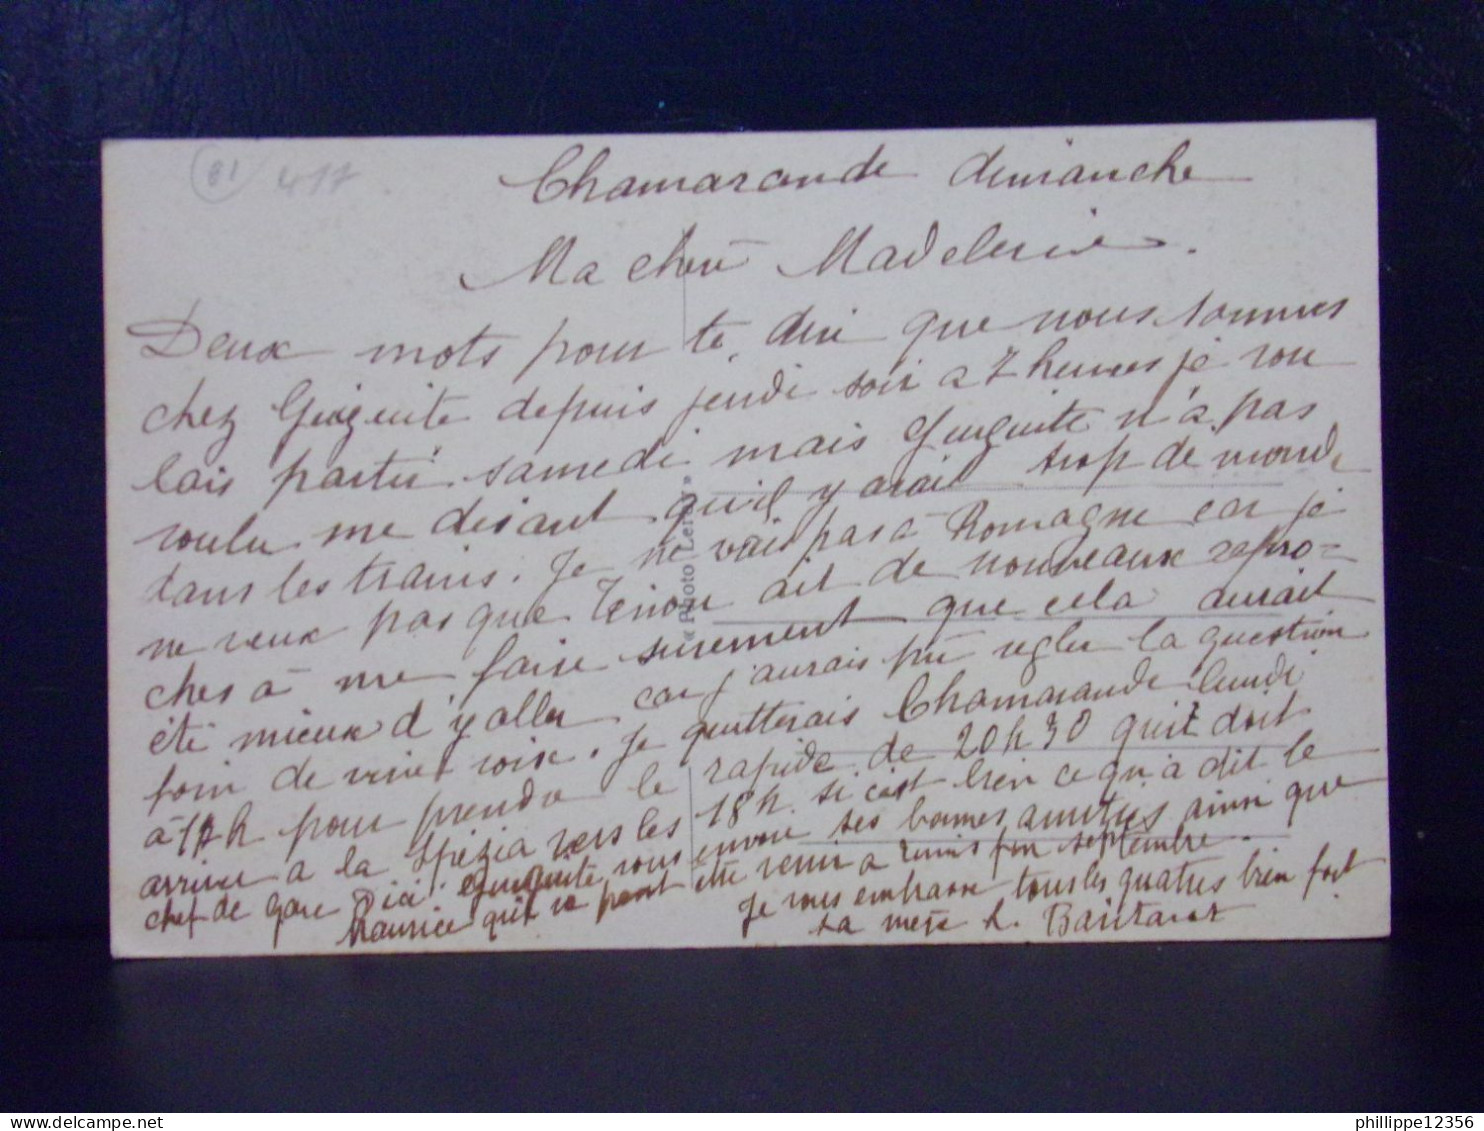 (81) 417
Chamarande dimanche
Ma chère Madeleine.
Deux mots pour te dire que nous sommes
chez depuis jeudi soir a 7 heures je vou
lais partir samedi mais n'a pas
voulu me disant qu'il y avait trop de monde
dans les trains. Je ne vais pas à Romagne car je
ne veux pas que ait de nouveaux repro=
ches à me faire surement que cela aurait
été mieux d'y aller car j'aurais pu regler la question
foin de vive voix. Je quitterais Chamarande lundi
à 17h pour prendre le rapide de 20h30 qui doit
arriver a la Spézia vers les 18h. si c'est bien ce qu'a dit le
chef de gare D'ici. vous envoie ses bonnes amitiés ainsi que
Maurice qui va peut etre venir a fin septembre.
Je vous embrasse tous les quatres bien fort
ta mère L.
« Photo Leroy »
phillippe12356